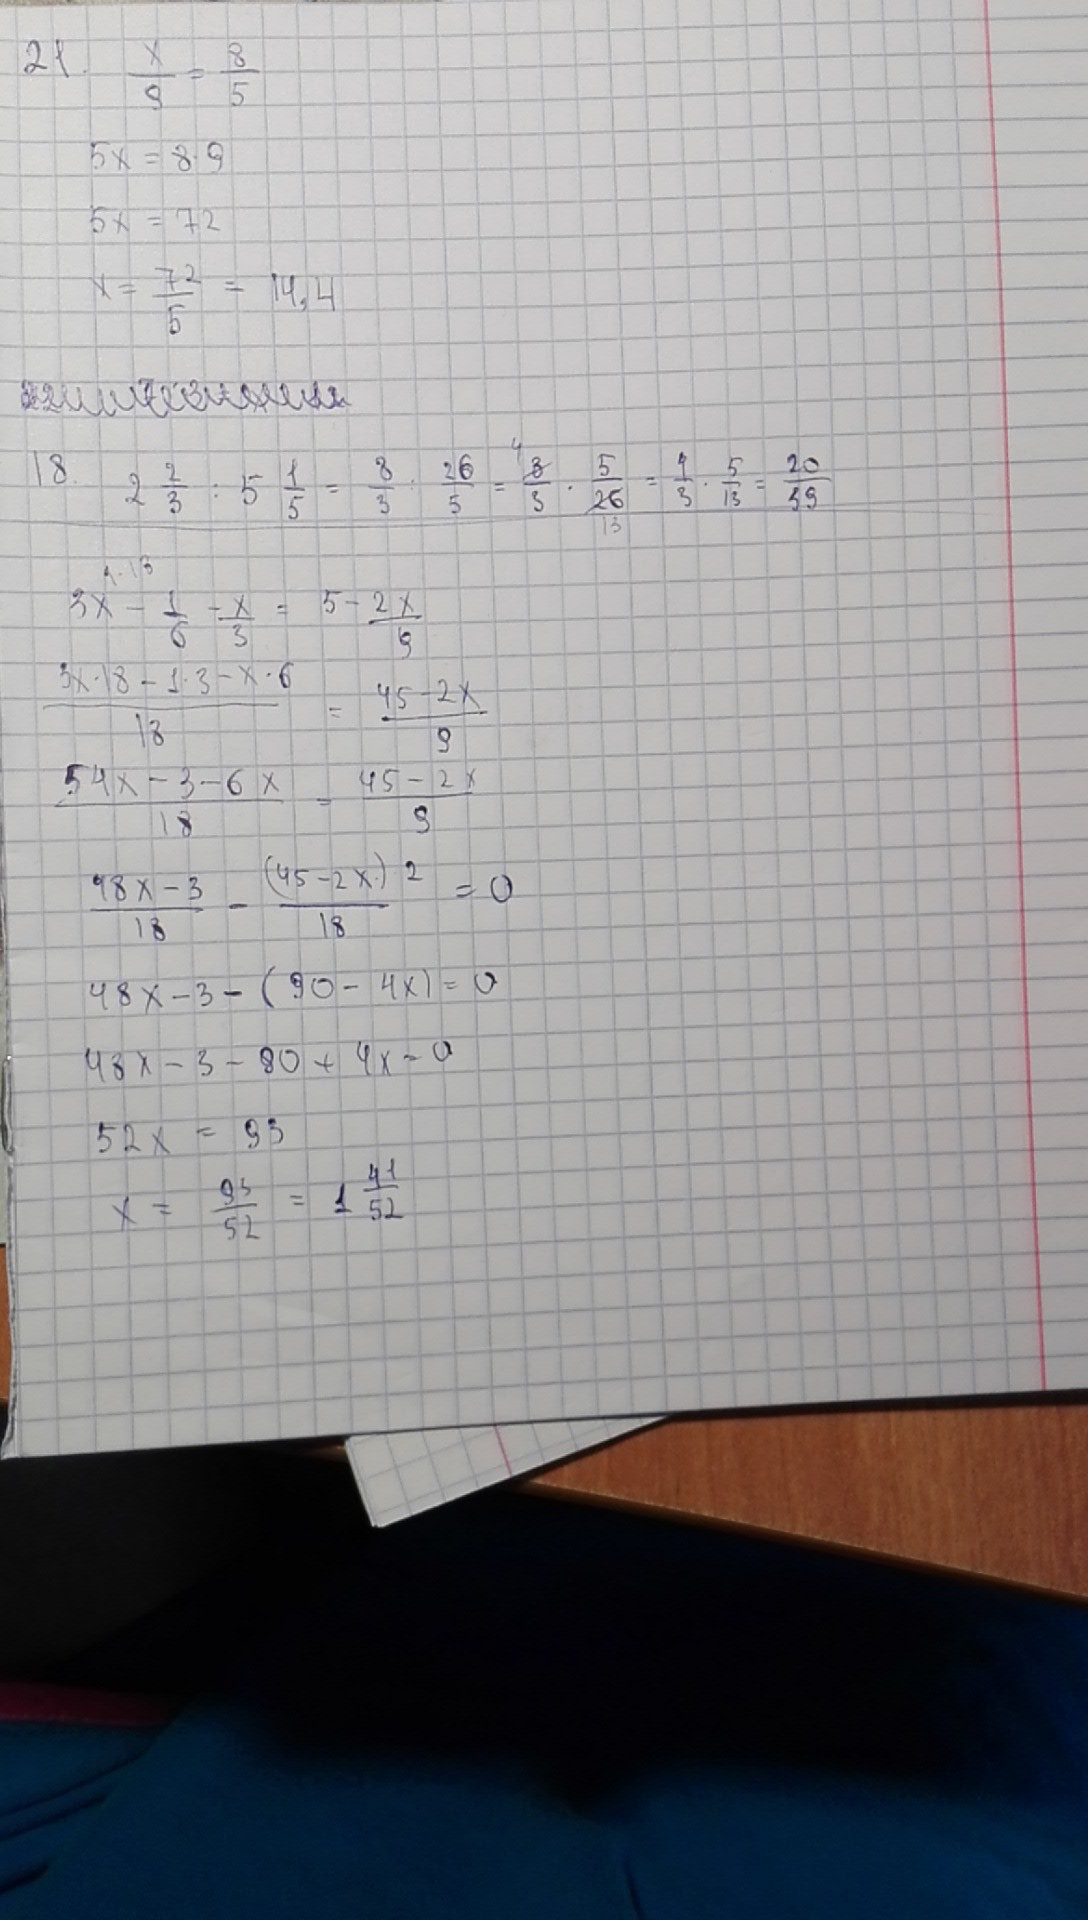 21. x/9 = 8/5
5x = 8·9
5x = 72
x = 72/5 = 14,4
18. 2 2/3 : 5 1/5 = 8/3 : 26/5 = 8/3 · 5/26 = 4/3 · 5/13 = 20/39
3x - 1/6 - x/3 = 5 - 2x/9
(3x·18 - 1·3 - x·6)/18 = (45 - 2x)/9
(54x - 3 - 6x)/18 = (45 - 2x)/9
(48x - 3)/18 - (45 - 2x)2/18 = 0
48x - 3 - (90 - 4x) = 0
48x - 3 - 90 + 4x = 0
52x = 93
x = 93/52 = 1 41/52